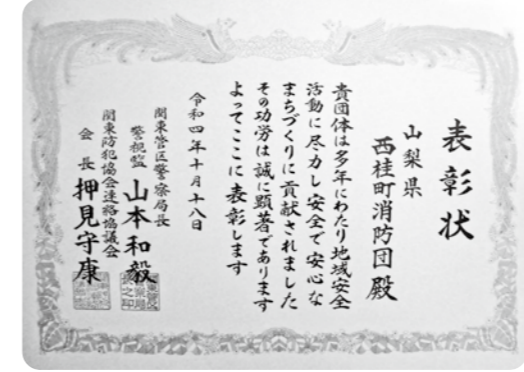 表彰状
山梨県
西桂町消防団殿
貴団体は多年にわたり地域安全
活動に尽力し安全で安心な
まちづくりに貢献されました
その功労は誠に顕著であります
よってここに表彰します
令和四年十月十八日
関東管区警察局長
警視監 山本和毅
関東防犯協会連絡協議会
会長 押見守康